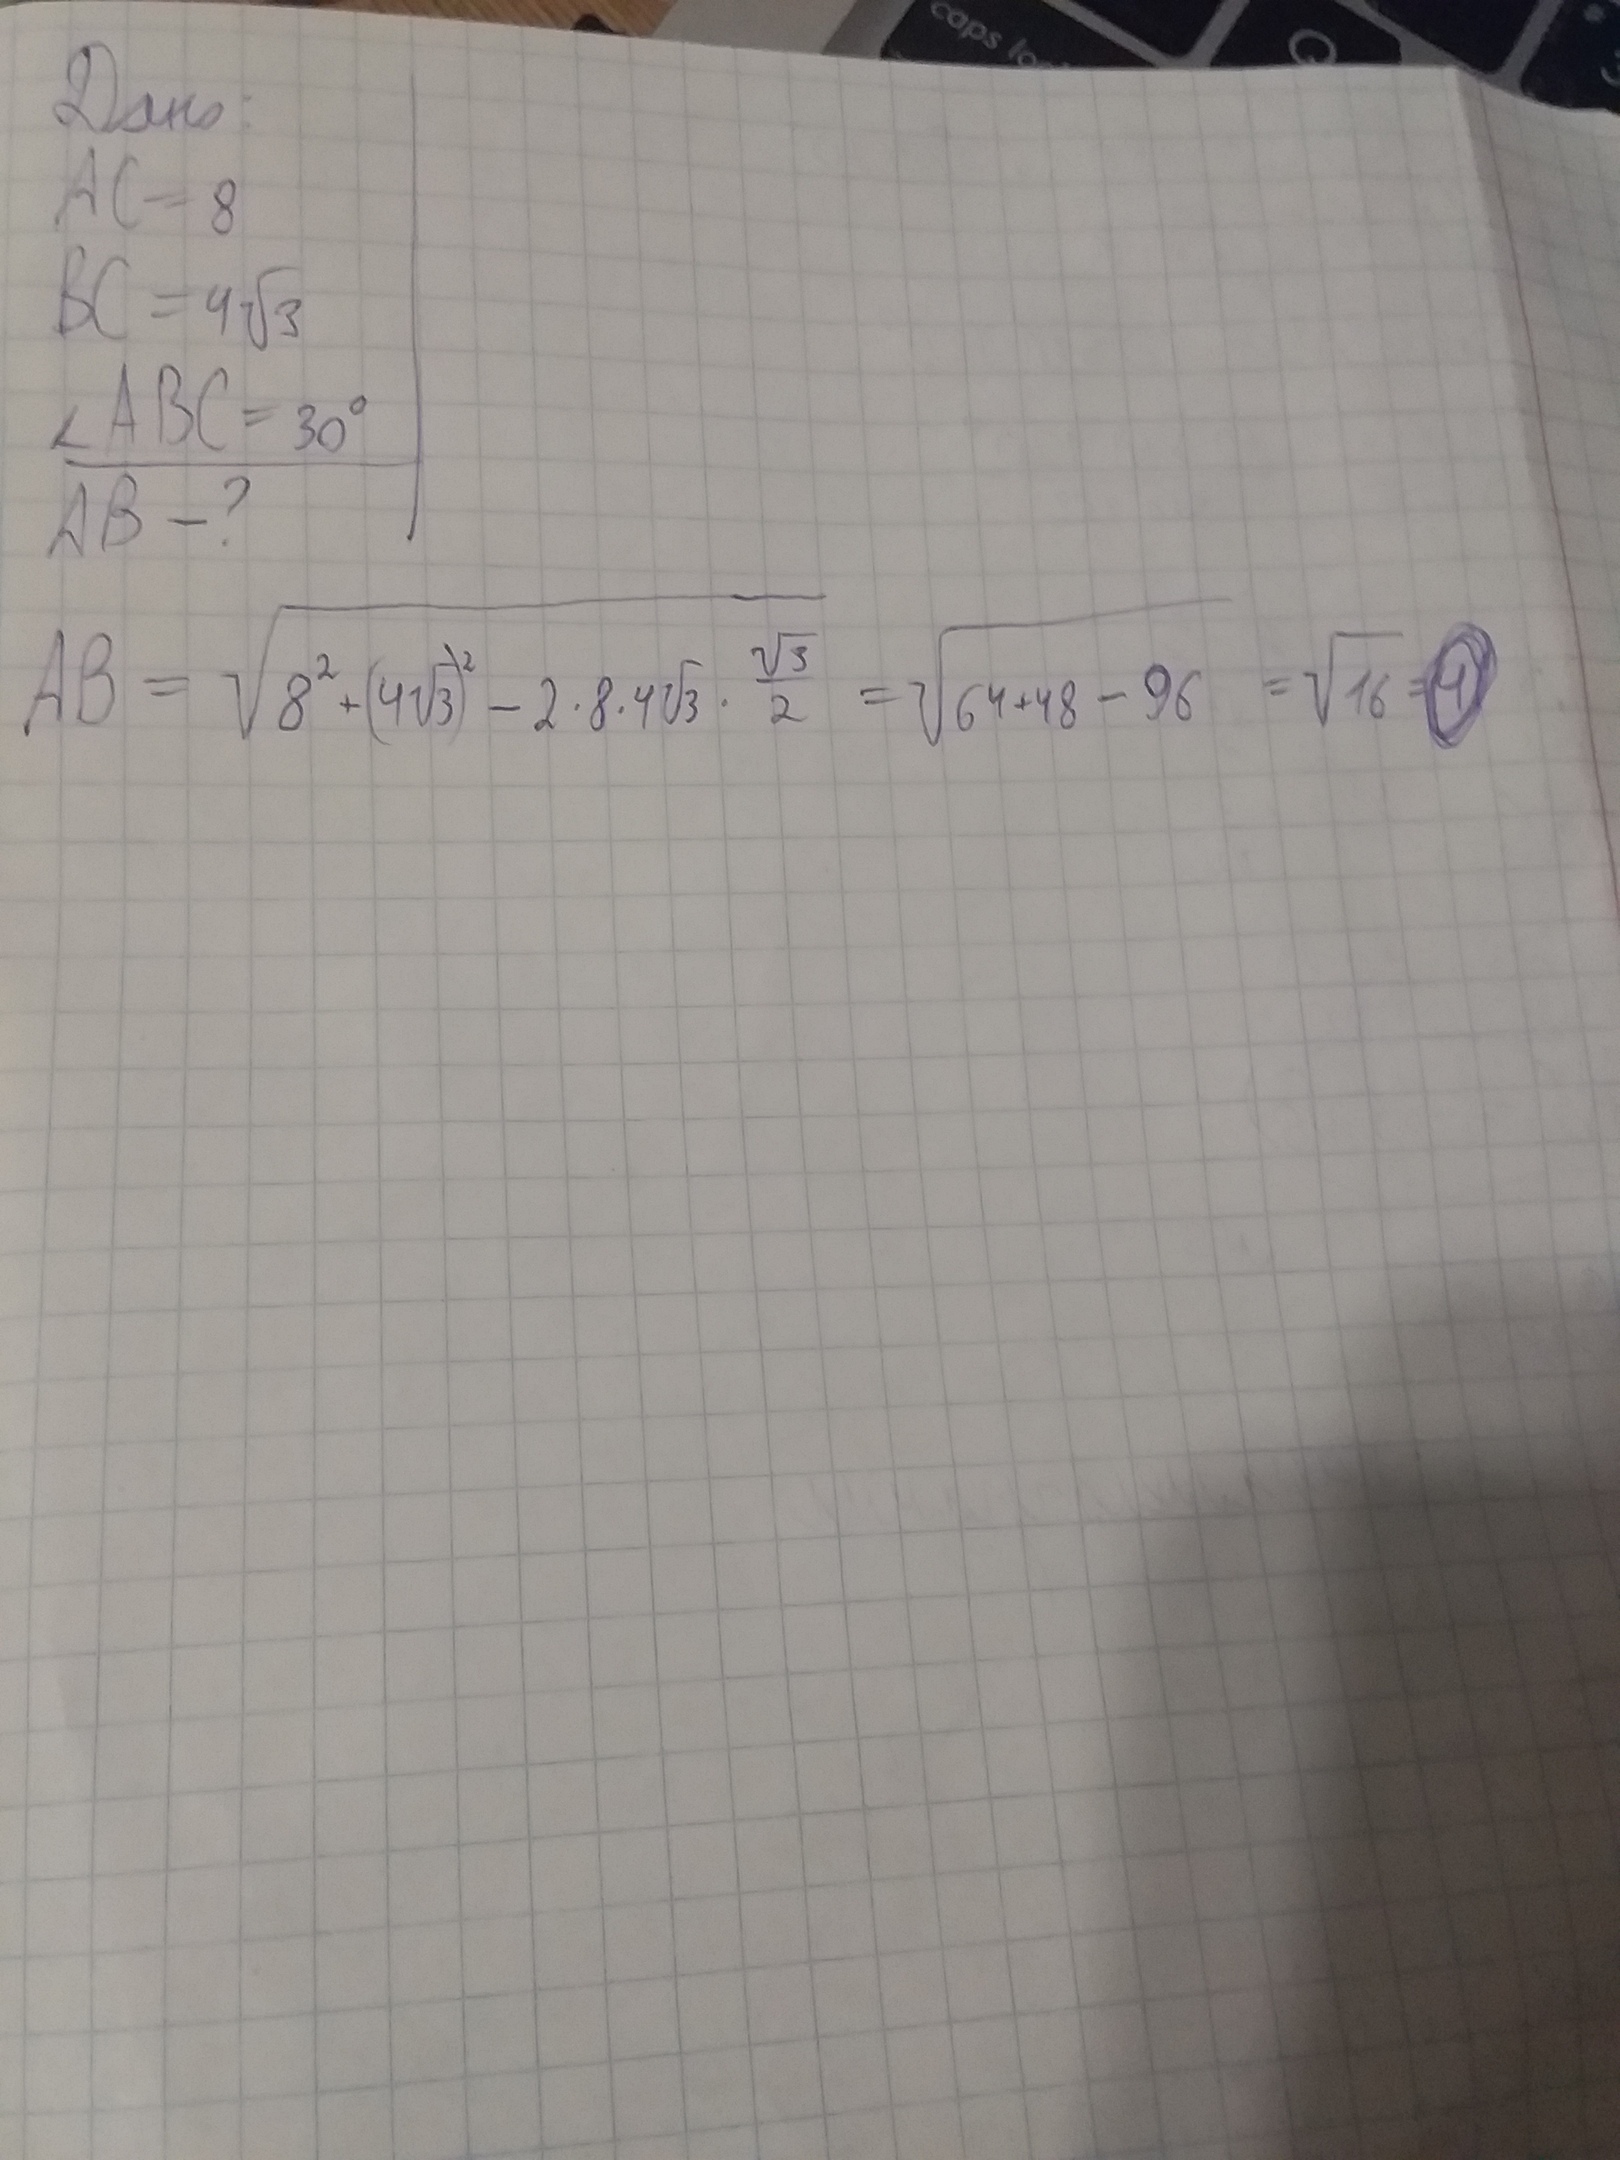 caps lock
Q
Дано:
AC = 8
BC = 4√3
∠ABC = 30°
AB – ?
AB = √(8² + (4√3)² – 2·8·4√3·√3/2) = √(64+48 – 96) = √16 = 4